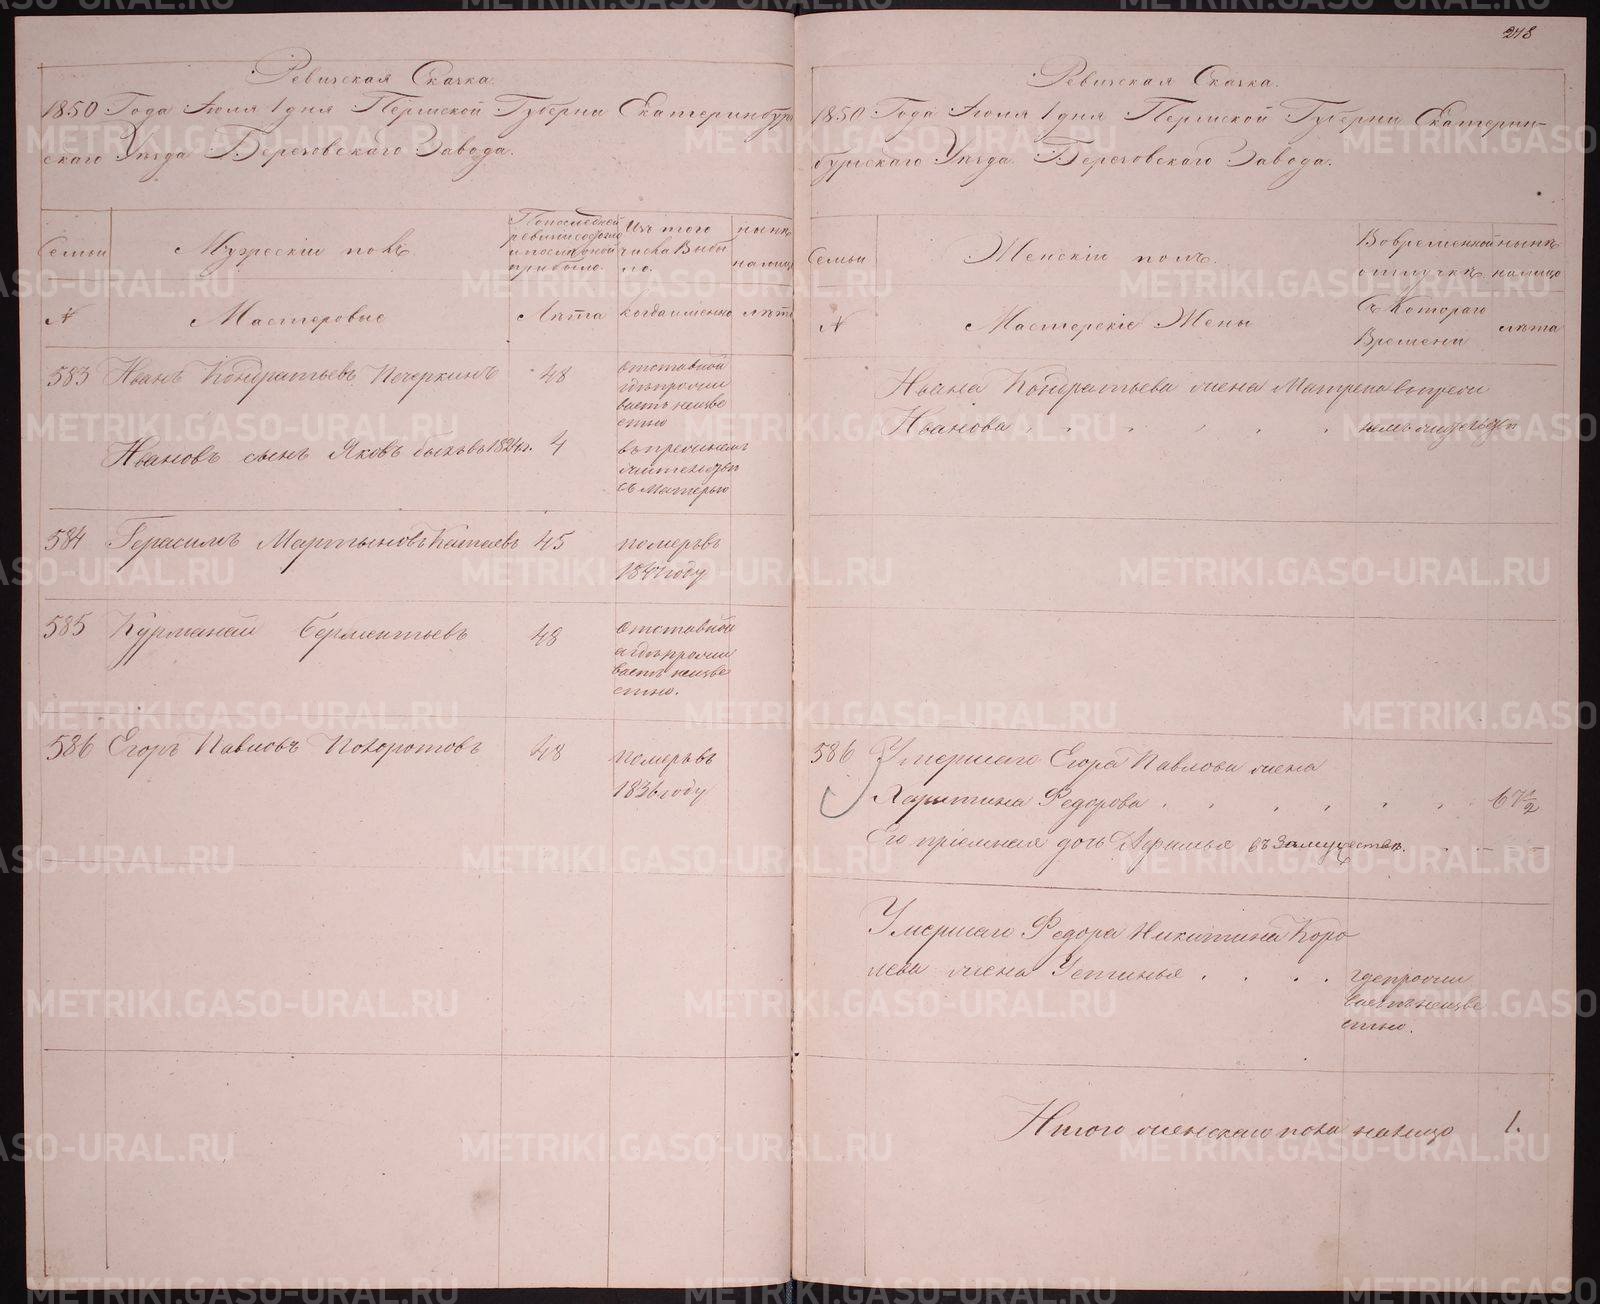 248
Ревизская Сказка.
1850 Года Июля 1 дня Пермской Губерни Екатеринбур
скаго Уѣзда Березовскаго Завода.
Семьи
Мужескiи полъ
По последней
ревизiи состояло
и после оной
прибыло.
Изъ того
числа Выбы
ло.
нынѣ
налицо
№
Мастеровые
Лѣта
когда именно
лѣта
583 Иванъ Кондратьевъ Печеркинъ 48
отставной
где прожи
ваетъ неизве
стно
Ивановъ сынъ Яковъ 4
съ Матерью
584 Герасимъ Мартыновъ Катаевъ 45
померъ въ
году
585 Курманай Серментьевъ 48
отставной
а где прожи
ваетъ неизве
стно.
586 Егоръ Павловъ Поворотовъ 48
померъ въ
1836 году
Ревизская Сказка.
1850 Года Июля 1 дня Пермской Губерни Екатерин-
бургскаго Уѣзда Березовскаго Завода.
Семьи
Женскiи полъ.
Во временной
отлучкѣ
нынѣ
налицо
№
Мастерскiе Жены
Съ Котораго
Времени
лѣта
Ивана Кондратьева жена Матрена
Иванова
586 Умершаго Егора Павлова жена
Харитина Федорова 67 1/2
Его прiемная дочь Афимья въ Замужествѣ.
Умершаго Федора Никитина Коро
лева жена Устинья
где прожи
ваетъ неизве
стно.
Итого женскаго пола налицо 1.
METRIKI.GASO-URAL.RU